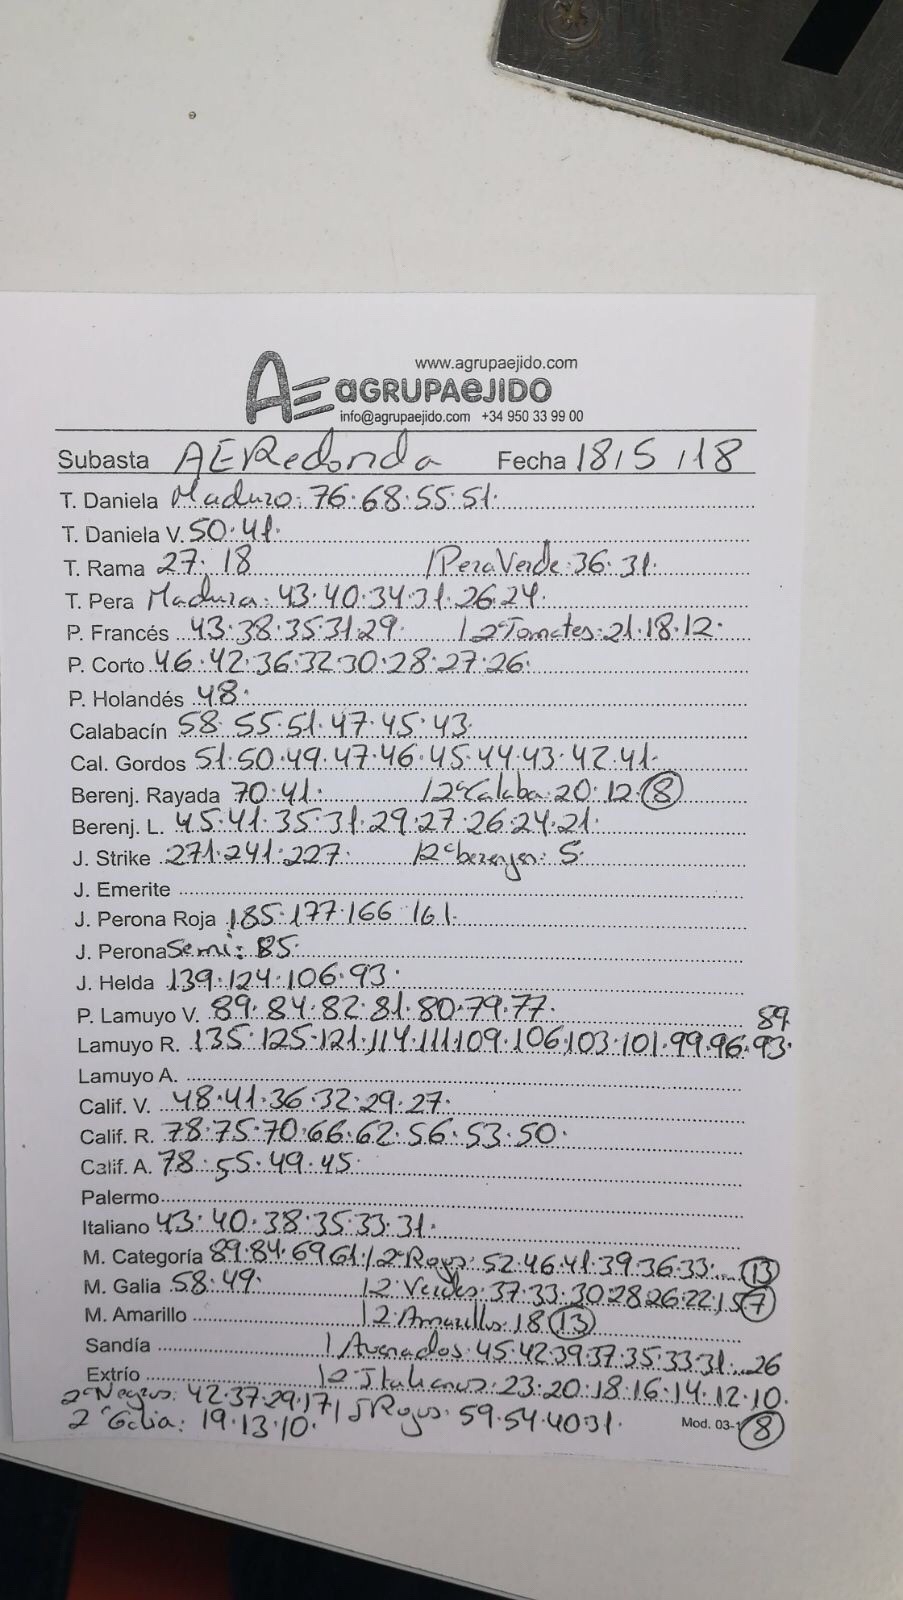 www.agrupaejido.com
AE aGRUPAeJIDO
info@agrupaejido.com +34 950 33 99 00
Subasta AERedonda Fecha 18/5/18
T. Daniela Maduro: 76·68·55·51·
T. Daniela V. 50·41·
T. Rama 27·18 / Pera Verde: 36·31·
T. Pera Madura: 43·40·34·31·26·24·
P. Francés 43·38·35·31·29· / 2ª Tomates: 21·18·12·
P. Corto 46·42·36·32·30·28·27·26·
P. Holandés 48·
Calabacín 58·55·51·47·45·43·
Cal. Gordos 51·50·49·47·46·45·44·43·42·41·
Berenj. Rayada 70·41· / 2ª Calaba: 20·12·8
Berenj. L. 45·41·35·31·29·27·26·24·21·
J. Strike 271·241·227· / 2ª berenjen: 5·
J. Emerite
J. Perona Roja 185·177·166·161·
J. Perona Semi: 85·
J. Helda 139·124·106·93·
P. Lamuyo V. 89·84·82·81·80·79·77·
89
Lamuyo R. 135·125·121·114·111·109·106·103·101·99·96·93·
Lamuyo A.
Calif. V. 48·41·36·32·29·27·
Calif. R. 78·75·70·66·62·56·53·50·
Calif. A. 78·55·49·45·
Palermo
Italiano 43·40·38·35·33·31·
M. Categoría 89·84·69·61· / 2ª Rojos: 52·46·41·39·36·33·...13
M. Galia 58·49· / 2ª Verdes: 37·33·30·28·26·22·15·7
M. Amarillo / 2ª Amarillo: 18·13
Sandía / Asurcados: 45·42·39·37·35·33·31...26
Extrío / 2ª Italianos: 23·20·18·16·14·12·10·
2ª Negros: 42·37·29·17· / J Rojos: 59·54·40·31·
2ª Galia: 19·13·10· Mod. 03-1 8